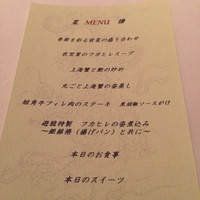 菜 MENU 譜
季節を彩る前菜の盛り合わせ
衣笠茸のフカヒレスープ
上海蟹と鮑の炒め
丸ごと上海蟹の姿蒸し
短角牛フィレ肉のステーキ 黒胡椒ソースがけ
遊龍特製 フカヒレの姿煮込み
～銀絲捲(揚げパン)と共に～
本日のお食事
本日のスイーツ